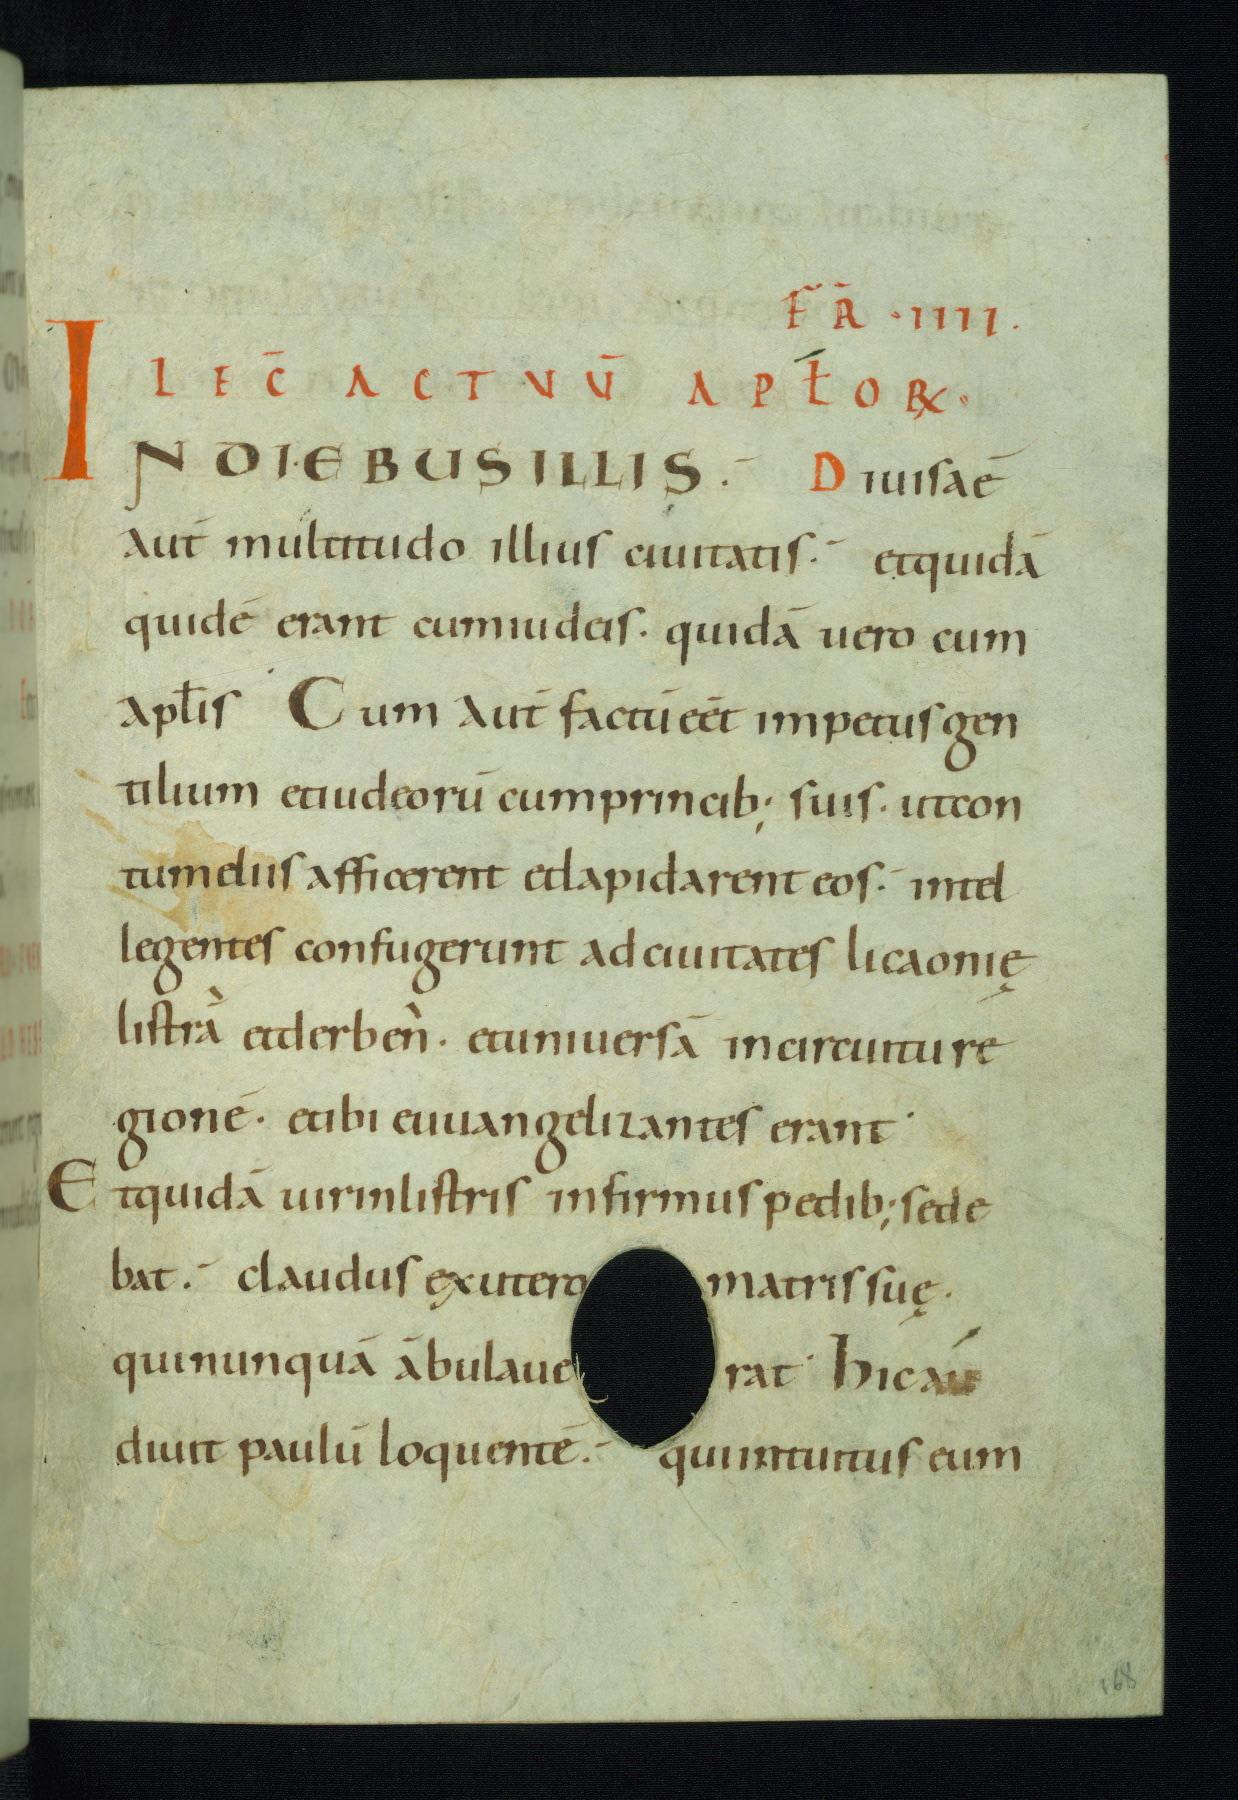 FR̄ · IIII .
LEC̄ ACTVŪ APŁOꝜ ·
IN DIEBUS ILLIS . Diuisa ē
aut̄ multitudo illius ciuitatis . et quidā
quidē erant cum iudeis · quidā uero cum
apƚis Cum aut̄ factū eēt impetus gen
tilium et iudeorū cum princib; suis · ut con
tumeliis afficerent et lapidarent eos . intel
legentes confugerunt ad ciuitates licaonię
listrā et derben̄ · et uniuersā in circuitu re
gionē · et ibi euuangelizantes erant
Et quidā uir in listris infirmus pedib; sede
bat . claudus ex utero matris suę ·
qui nunquā ābulaue rat hic au
diuit paulū loquentē . qui intuitus eum
168